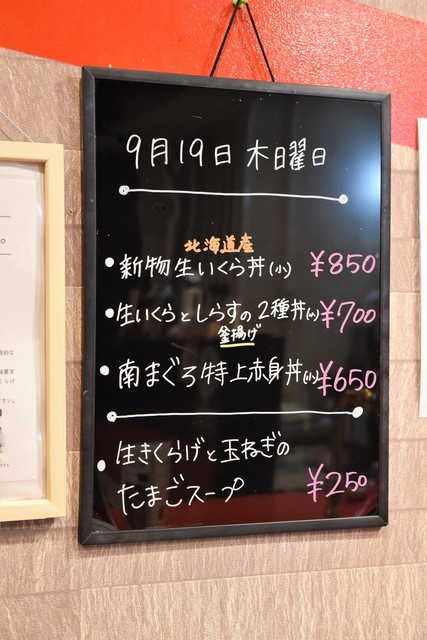 9月19日 木曜日
北海道産
・新物生いくら丼(小) ¥850
・生いくらとしらすの2種丼(小) ¥700
釜揚げ
・南まぐろ特上赤身丼(小) ¥650
・生きくらげと玉ねぎの
たまごスープ ¥250